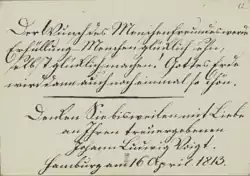 Der Wunsch des Menschenfreundes werde
Erfüllung. Menschen glücklich sehn,
selbst glücklich machen! Gottes Erde
wird dann auch noch einmal so schön.
Denken Sie bisweilen mit Liebe
an Ihren treuergebenen
Johann Ludwig Voigt.
Hamburg am 16 April. 1813.